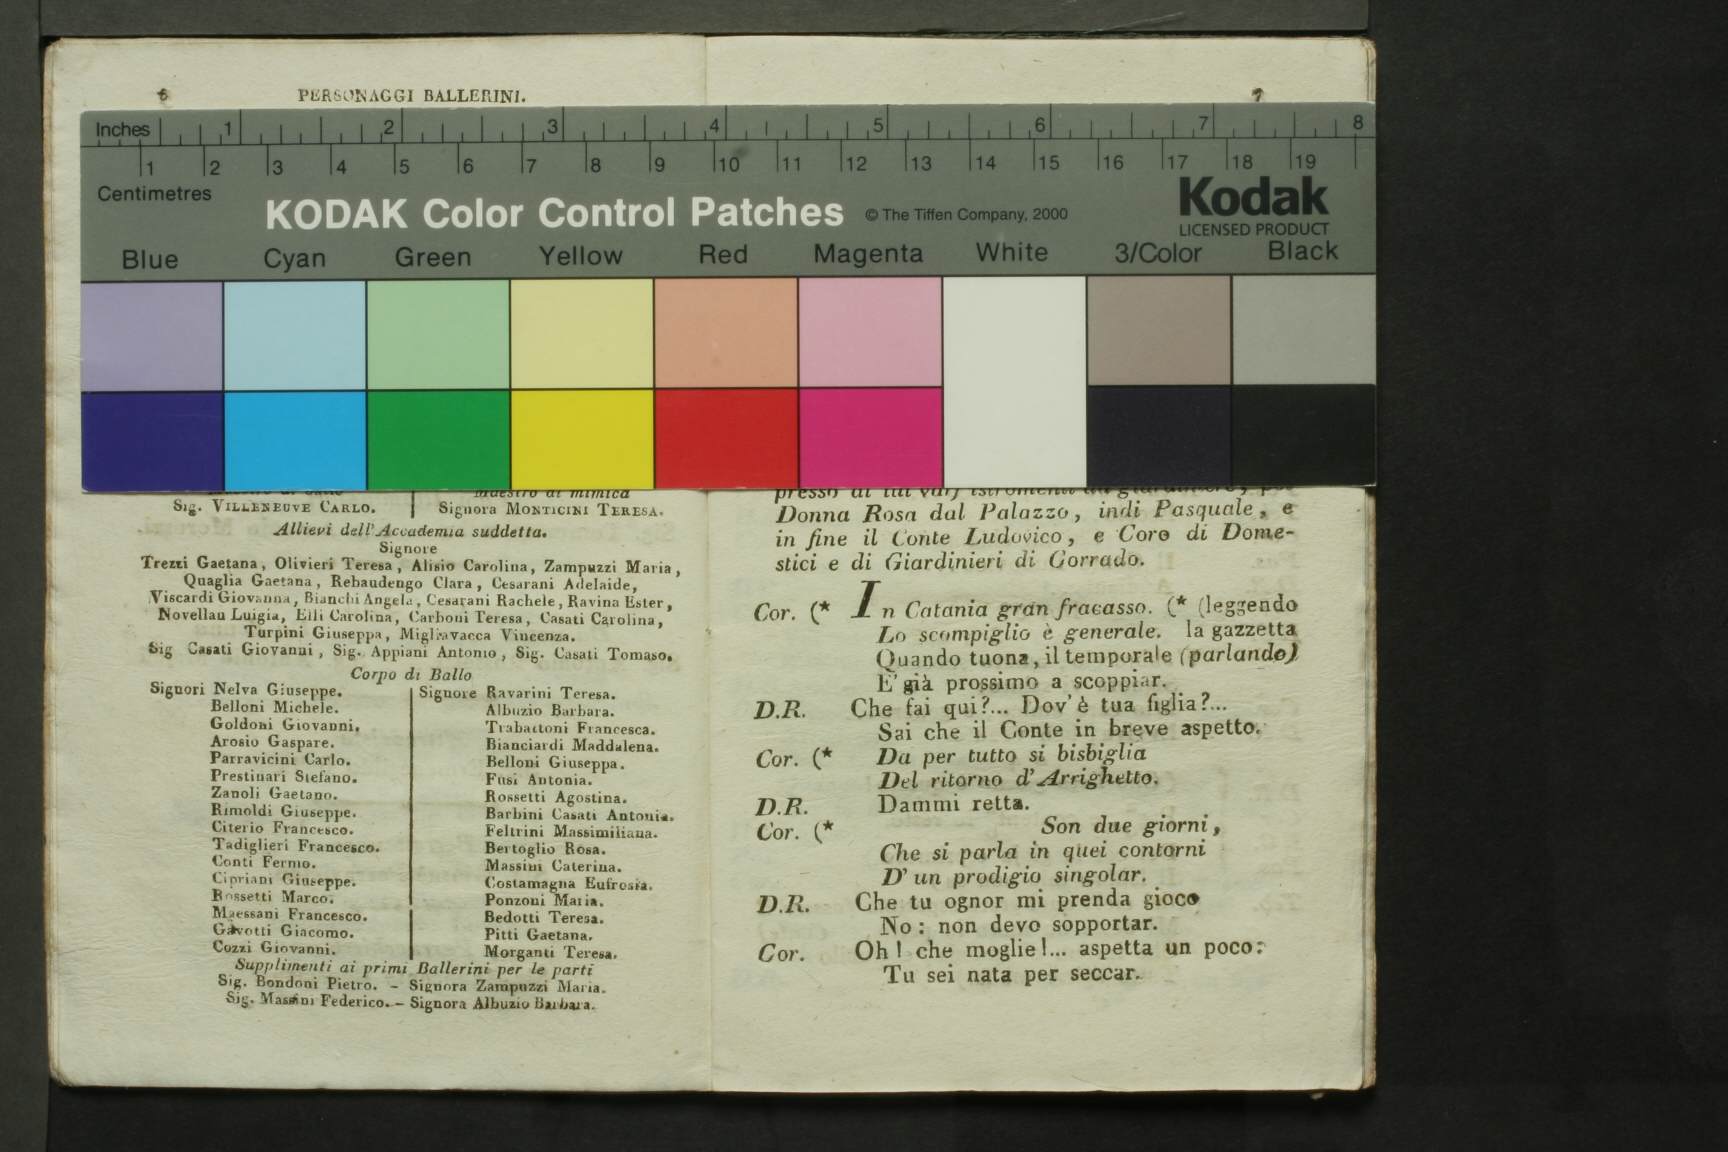 6 PERSONAGGI BALLERINI.
7
Inches 1 2 3 4 5 6 7 8
1 2 3 4 5 6 7 8 9 10 11 12 13 14 15 16 17 18 19
Centimetres
KODAK Color Control Patches © The Tiffen Company, 2000
Kodak
LICENSED PRODUCT
Blue Cyan Green Yellow Red Magenta White 3/Color Black
Maestro di mimica
Sig. VILLENEUVE CARLO. Signora MONTICINI TERESA.
Allievi dell'Accademia suddetta.
Signore
Trezzi Gaetana, Olivieri Teresa, Alisio Carolina, Zampuzzi Maria,
Quaglia Gaetana, Rebaudengo Clara, Cesarani Adelaide,
Viscardi Giovanna, Bianchi Angela, Cesarani Rachele, Ravina Ester,
Novellau Luigia, Elli Carolina, Carboni Teresa, Casati Carolina,
Turpini Giuseppa, Migliavacca Vincenza.
Sig Casati Giovanni, Sig. Appiani Antonio, Sig. Casati Tomaso.
Corpo di Ballo
Signori Nelva Giuseppe.
Belloni Michele.
Goldoni Giovanni.
Arosio Gaspare.
Parravicini Carlo.
Prestinari Stefano.
Zanoli Gaetano.
Rimoldi Giuseppe.
Citerio Francesco.
Tadiglieri Francesco.
Conti Fermo.
Cipriani Giuseppe.
Rossetti Marco.
Maessani Francesco.
Gavotti Giacomo.
Cozzi Giovanni.
Signore Ravarini Teresa.
Albuzio Barbara.
Trabattoni Francesca.
Bianciardi Maddalena.
Belloni Giuseppa.
Fusi Antonia.
Rossetti Agostina.
Barbini Casati Antonia.
Feltrini Massimiliana.
Bertoglio Rosa.
Massini Caterina.
Costamagna Eufrosia.
Ponzoni Maria.
Bedotti Teresa.
Pitti Gaetana.
Morganti Teresa.
Supplimenti ai primi Ballerini per le parti
Sig. Bondoni Pietro. - Signora Zampuzzi Maria.
Sig. Massini Federico. - Signora Albuzio Barbara.
presso di lui varj istromenti da giardiniere, poi
Donna Rosa dal Palazzo, indi Pasquale, e
in fine il Conte Ludovico, e Coro di Dome-
stici e di Giardinieri di Corrado.
Cor. (* In Catania gran fracasso. (* (leggendo
Lo scompiglio è generale. la gazzetta
Quando tuona, il temporale (parlando)
E' già prossimo a scoppiar.
D.R. Che fai qui?... Dov'è tua figlia?...
Sai che il Conte in breve aspetto.
Cor. (* Da per tutto si bisbiglia
Del ritorno d'Arrighetto.
D.R. Dammi retta.
Cor. (* Son due giorni,
Che si parla in quei contorni
D' un prodigio singolar.
D.R. Che tu ognor mi prenda gioco
No: non devo sopportar.
Cor. Oh! che moglie!... aspetta un poco:
Tu sei nata per seccar.